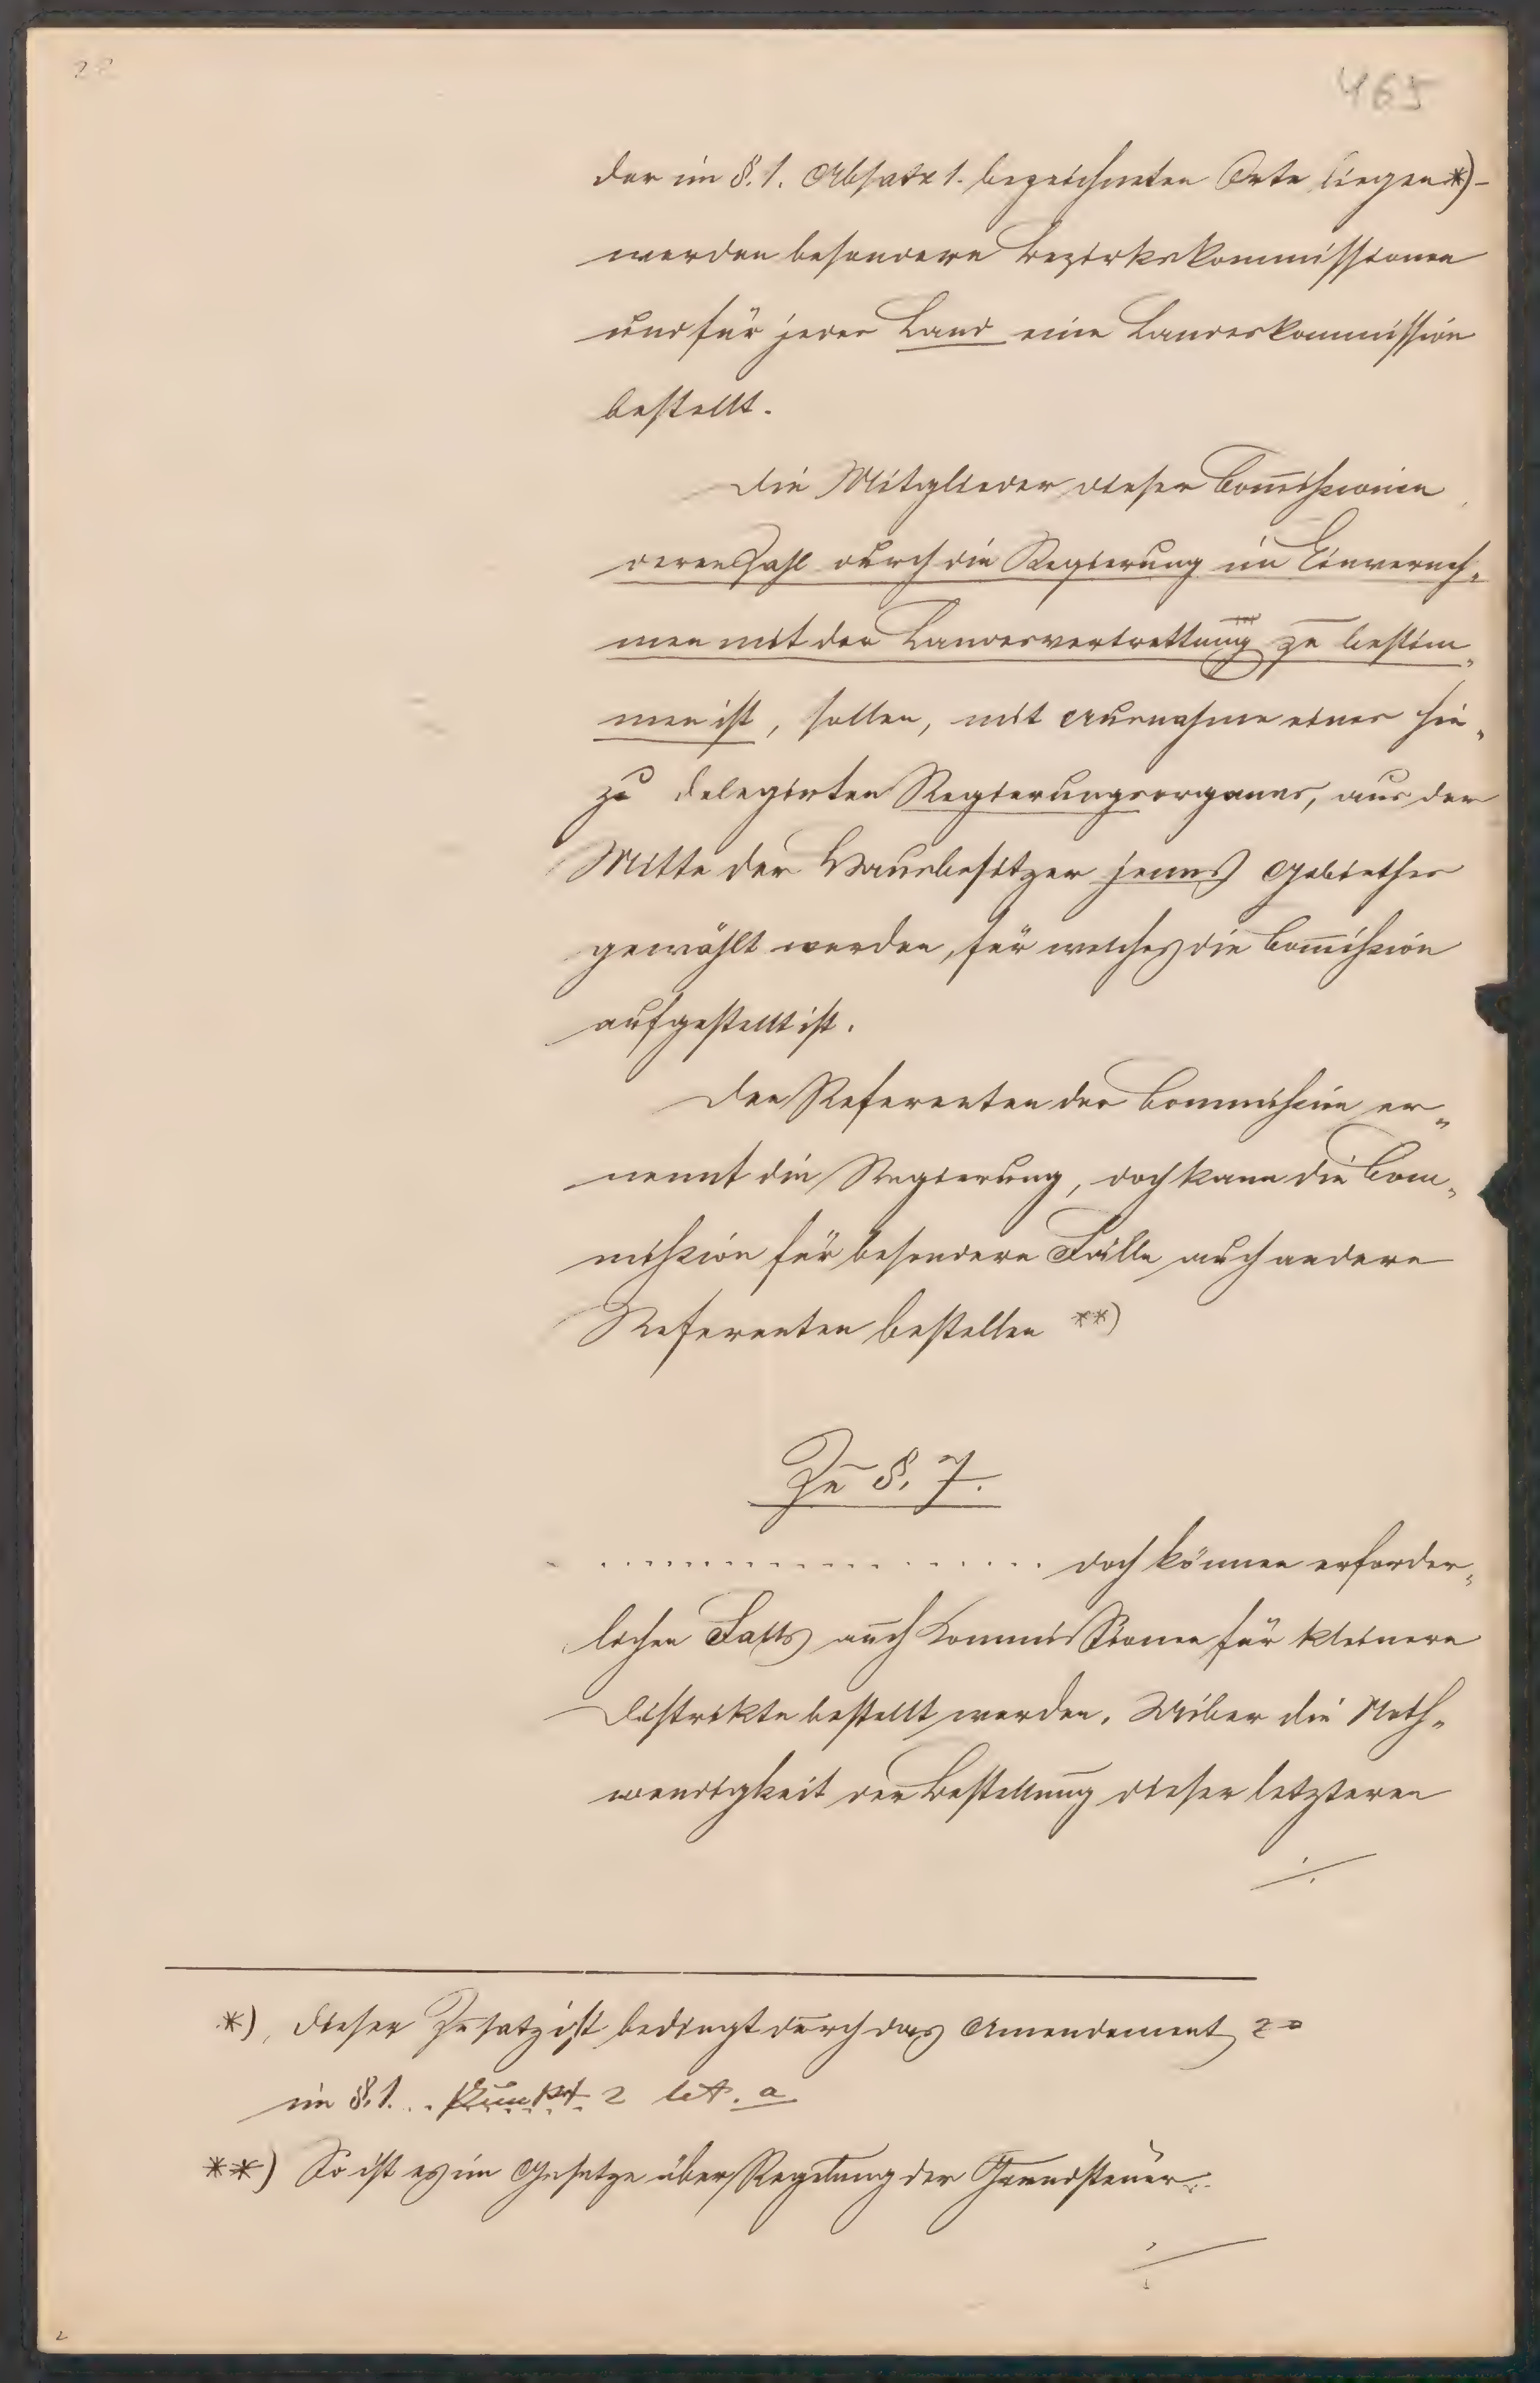 465
der im §. 1. Absatz 1. bezeichneten Orte liegen *) -
werden besondere Bezirkskommissionen
und für jedes Land eine Landeskommission
bestellt.
Die Mitglieder dieser Com̅issionen
deren Zahl durch die Regierung im Einverneh„
men mit der Landesvertrettung zu bestim„
men ist, sollen, mit Ausnahme eines hie„
zu delegirten Regierungsorganes, aus der
Mitte der Hausbesitzer jenes Gebiethes
gewählt werden, für welches die Com̅ission
aufgestellt ist.
Den Referenten der Commission er„
nennt die Regierung, doch kann die Com„
mission für besondere Fälle auch andere
Referenten bestellen **)
Zu §. 7.
. . . . . . . . . . . . . . . . . . . . doch können erforder„
lichen Falls auch Kommissionen für kleinere
Distrikte bestellt werden. Uiber die Noth„
wendigkeit der Bestellung dieser letzteren
./.
*) Dieser Zusatz ist bedingt durch das Amendement
im §. 1. . . Punkt 2 let. a
**) So ist es im Gesetze über Regelung der Grundsteuer.
./.